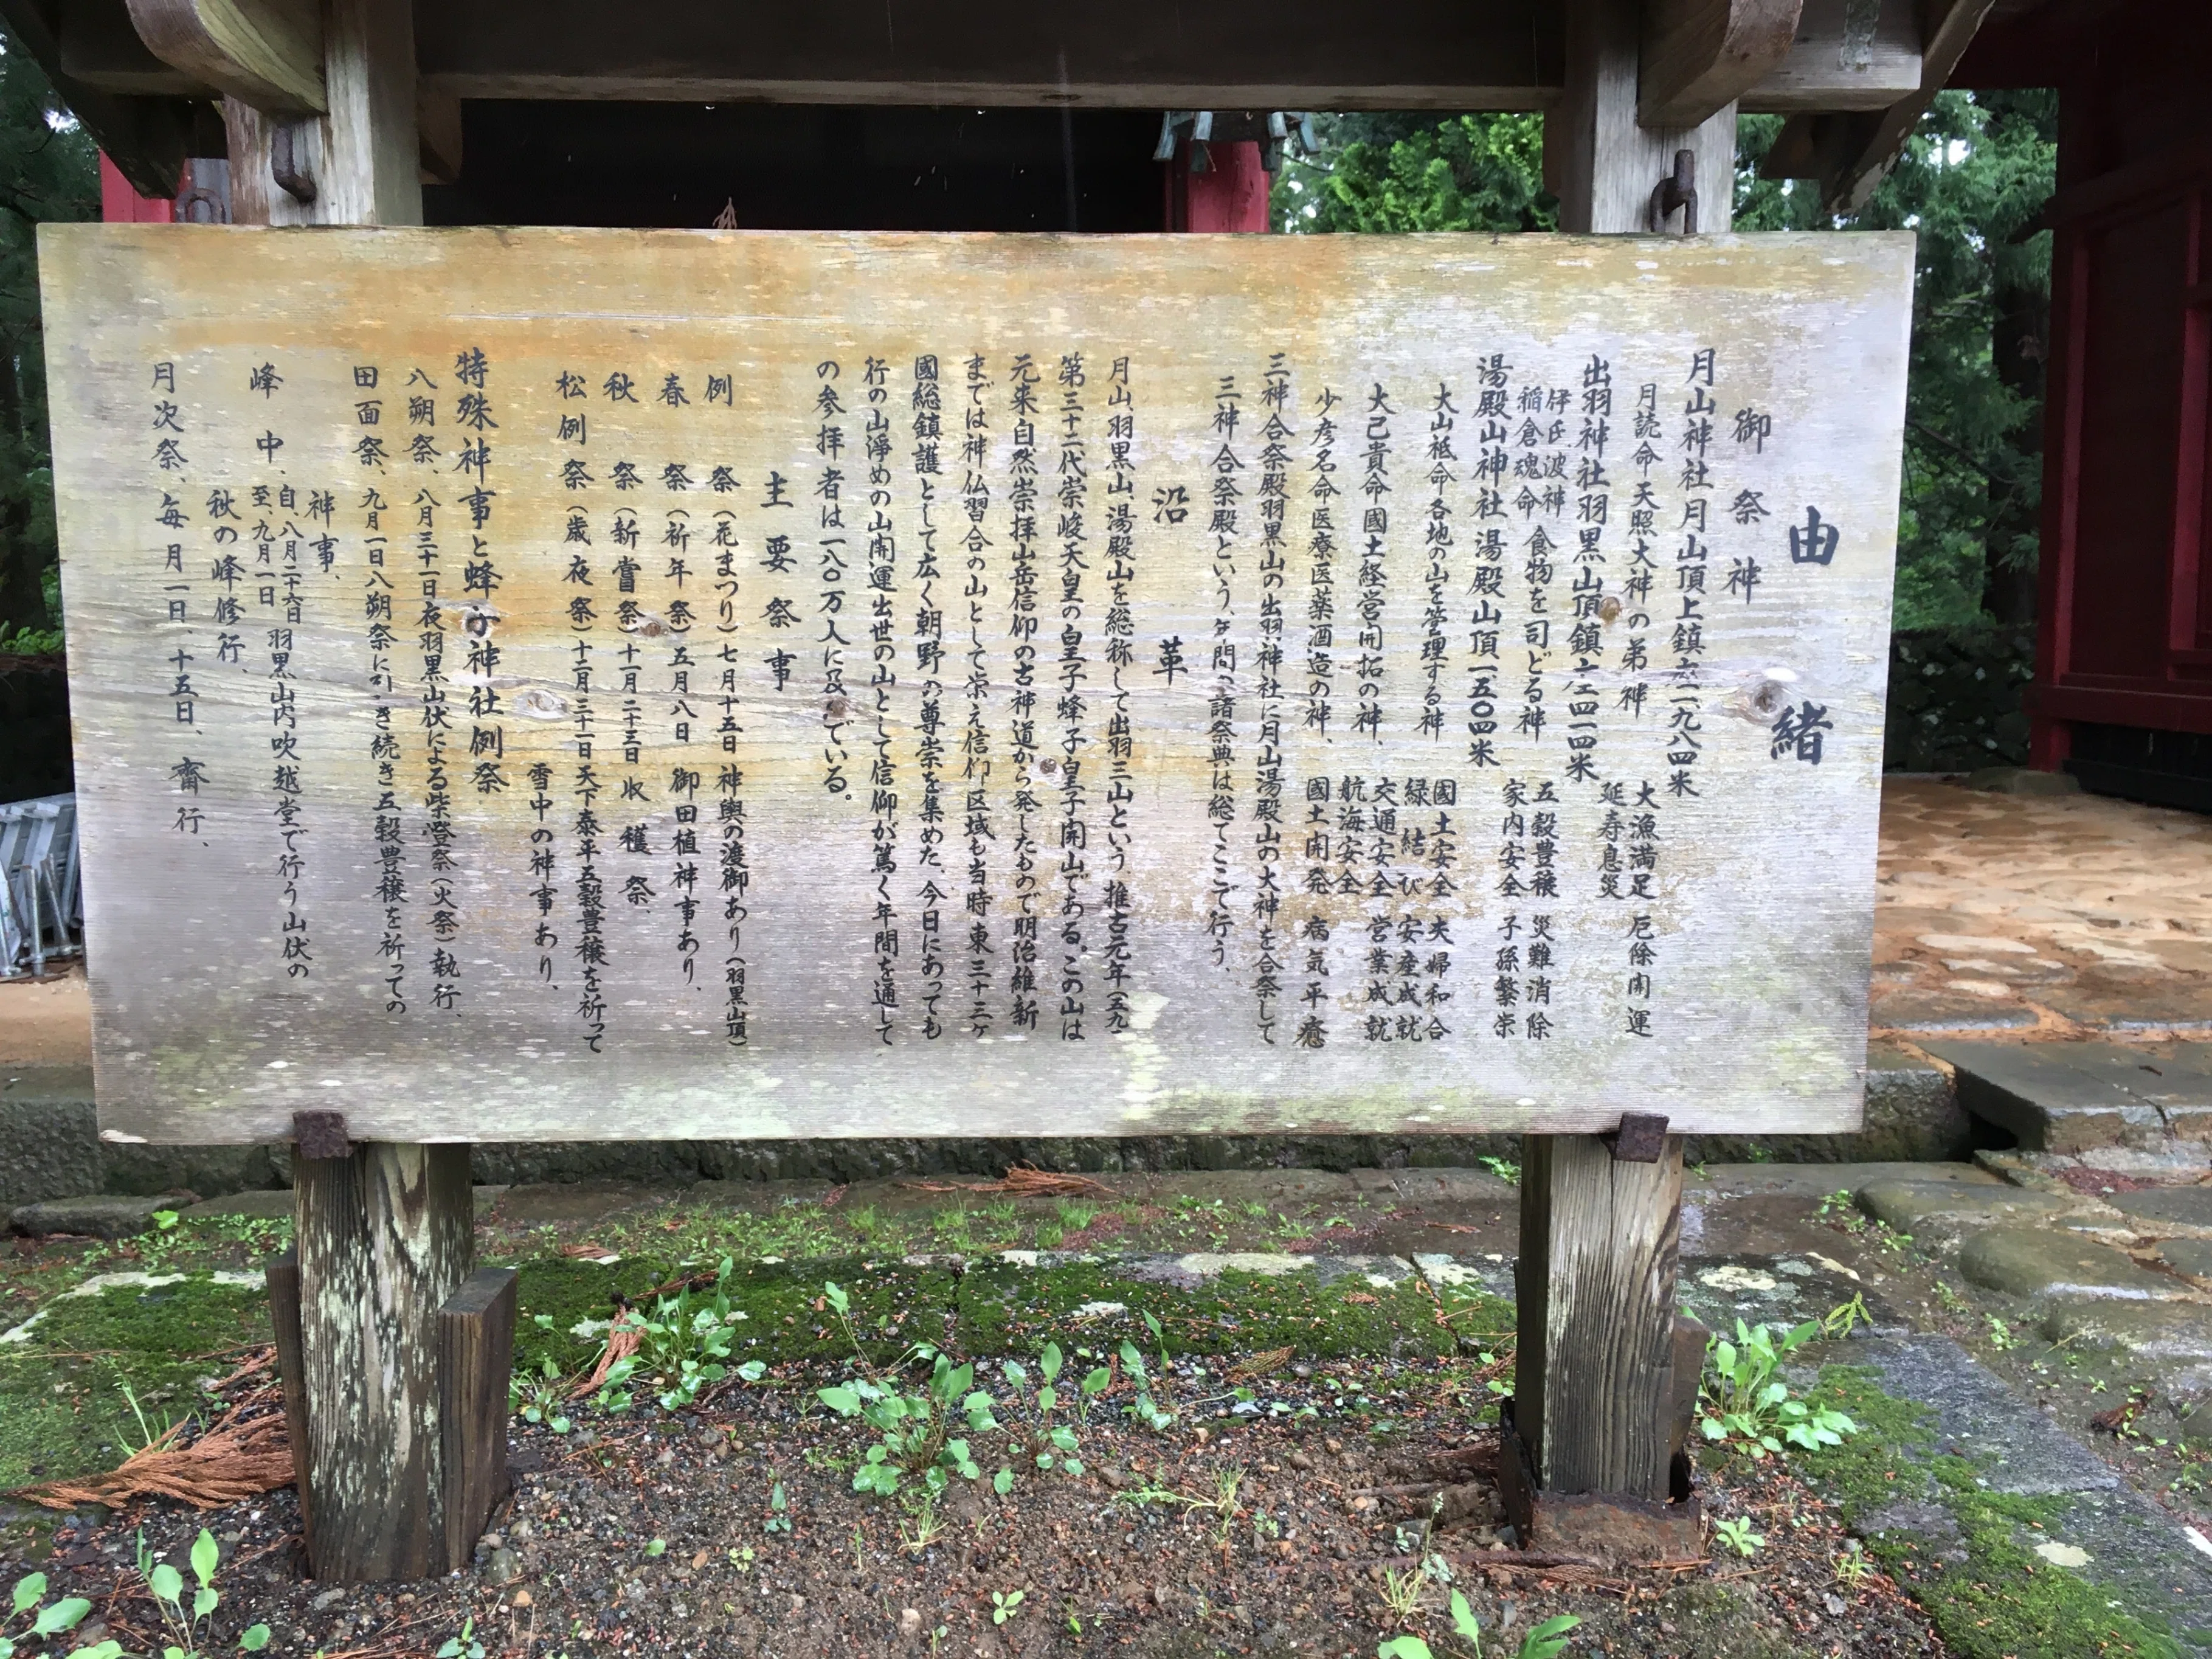 由緒
御祭神
月山神社月山頂上鎮一、九八四米
月読命天照大神の弟神
大漁満足 厄除開運
延寿息災
出羽神社羽黒山頂鎮 四一四米
伊氐波神
稲倉魂命 食物を司どる神
五穀豊穣 災難消除
家内安全 子孫繁栄
湯殿山神社湯殿山頂一、五〇四米
大山祗命各地の山を管理する神
國土安全 夫婦和合
緑結び 安産成就
大己貴命國土経営開拓の神、
交通安全 営業成就
航海安全
少彦名命医療医薬酒造の神、
國土開発 病気平癒
三神合祭殿羽黒山の出羽神社に月山湯殿山の大神を合祭して
三神合祭殿という、年間の諸祭典は総てここで行う、
沿革
月山、羽黒山、湯殿山を総称して出羽三山という、推古元年(五九
第三十二代崇峻天皇の皇子蜂子皇子開山である。この山は
元来自然崇拝山岳信仰の古神道から発したもので明治維新
までは神仏習合の山として栄え信仰区域も当時東三十三ヶ
國総鎮護として広く朝野の尊崇を集めた、今日にあっても
行の山淨めの山開運出世の山として信仰が篤く年間を通して
の参拝者は一八〇万人に及んでいる。
主要祭事
例祭(花まつり)七月十五日 神輿の渡御あり(羽黒山頂)
春祭(祈年祭)五月八日 御田植神事あり、
秋祭(新嘗祭)十一月二十三日 収穫祭、
松例祭(歳夜祭)十二月三十一日天下泰平五穀豊穣を祈って
雪中の神事あり、
特殊神事と蜂子神社例祭
八朔祭、八月三十一日夜羽黒山伏による柴燈祭(火祭)執行、
田面祭、九月一日八朔祭に引き続き五穀豊穣を祈っての
神事、
峰中、自、八月二十六日
至、九月一日 羽黒山内吹越堂で行う山伏の
秋の峰修行、
月次祭、毎月一日、十五日、齋行、